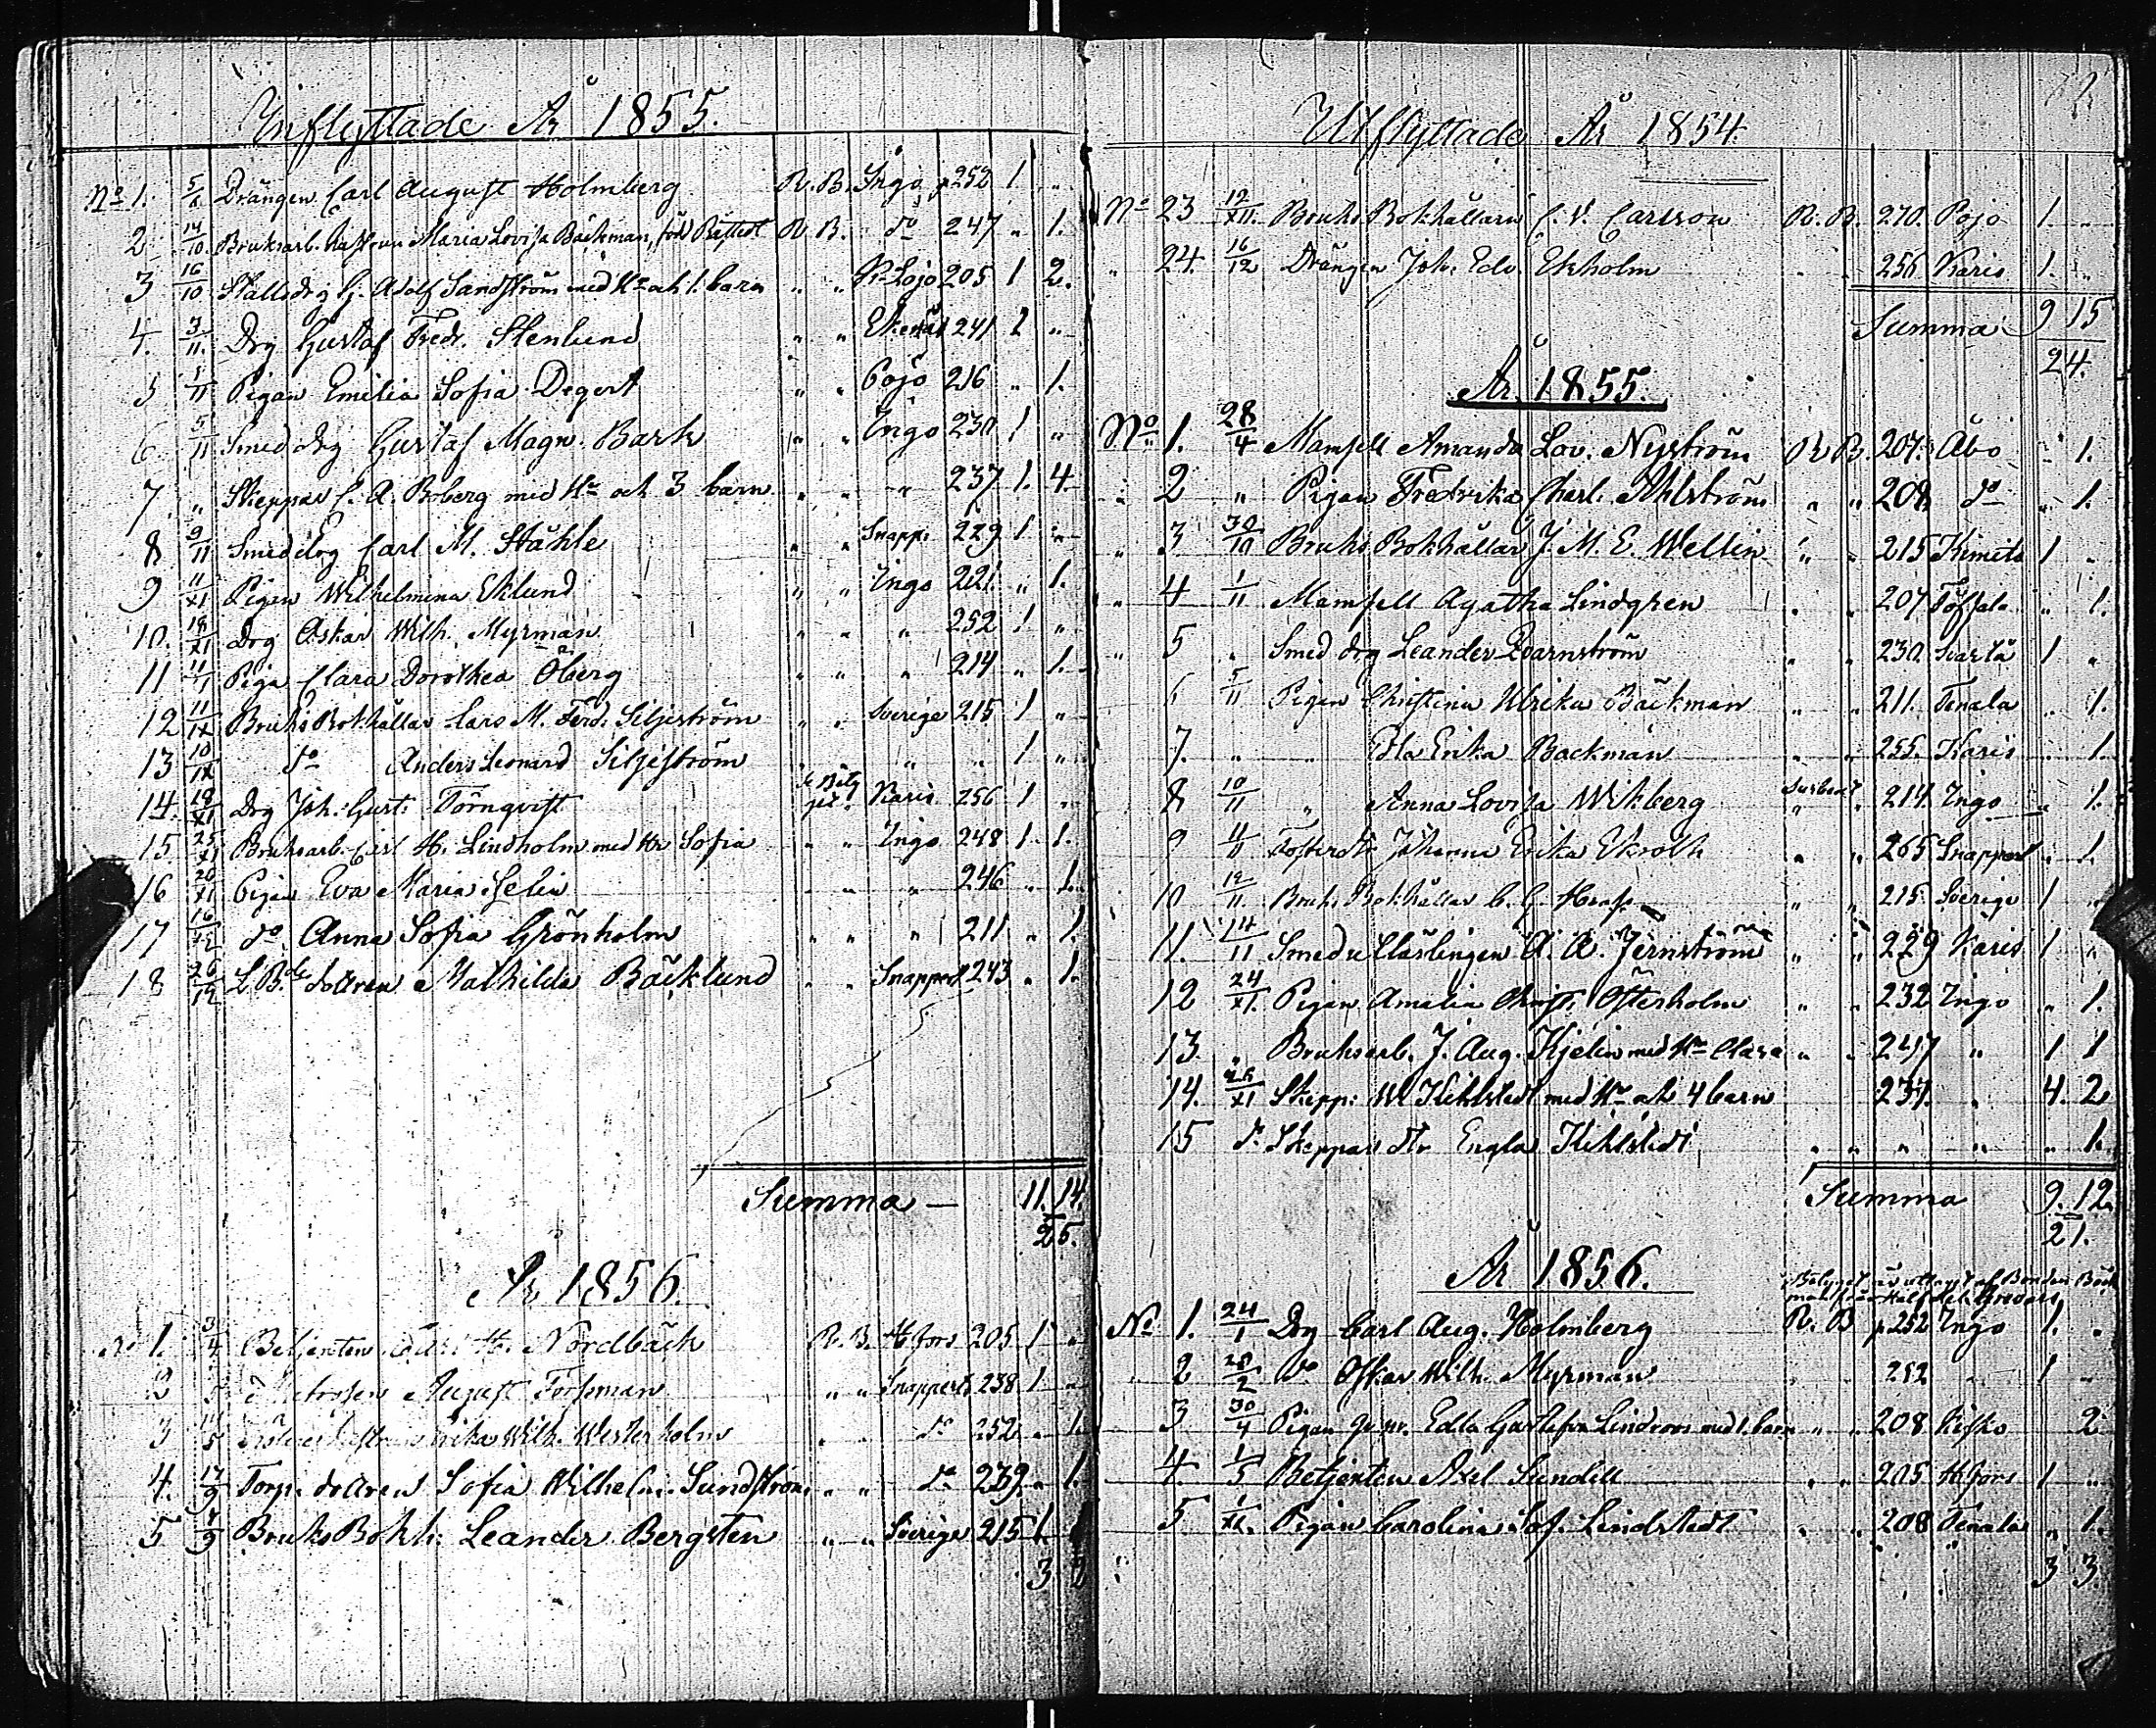 Inflyttade År 1855.
No 1. 5/6 Drängen Carl August Holmberg R. B. Ingo p 252 1 "
2 14/10 Bruksarb. Hustrun Maria Lovisa Bäckman, född R. B. do 247 " 1.
3 16/10 Stalldrg G. Adolf Sandström med Hu och 1. barn " " Lojo 205 1 2.
4. 3/11 Drg Gustaf Fredr. Stenlund " " Ekenäs 241 1 "
5 11 Pigan Emilia Sofia Degert " " Pojo 216 " 1.
6 5/11 Smed drg Gustaf Magn. Bark " " Ingo 230 1 "
7. " Skeppar C. A. Boberg med Hu och 3 barn " " " 237 1. 4
8 9/11 Smed drg Carl M. Ståhle " " Snapp. 229 1 "
9 11/XI Pigan Wilhelmina Eklund " " Ingo 221 " 1.
10. 18/XI drg Oskar Wilh. Myrman " " " 252 1 "
11 Piga Clara Dorothea Öberg " " " 214 " 1.
12 11/IX Bruks Bokhållar Lars M. Ferd. Siljeström " " Sverige 215 1 "
13 10/IX do Anders Leonard Siljeström " " " " 1 "
14. 18/XI Drg Joh. Gust. Törnqvist Karis 256 1 "
15. 25/XI Bruksarb. Carl H. Lindholm med Hu Sofia " " Ingo 248 1 1.
16 20/XI Pigan Eva Maria Selin " " " 246 " 1.
17 16/12 do Anna Sofia Grönholm " " " 211 " 1.
18 26/12 L. B. dottren Mathilda Bäcklund " " Snappert. 243 " 1.
Summa — 11. 14.
25.
År 1856.
No 1. 3/4 Betjenten H. Nordbäck R. B. H.fors 205 1 "
2 August Forsman " " Snapperts 238 1 "
3 Wilh. Westerholm " " do 252 " 1.
4. 17/9 Torp. dottren Sofia Wilhelm. Sundström " " do 239 " 1.
5 Bruks Bokh. Leander Bergsten " " Sverige 215 1
3
Utflyttade År 1854.
No 23 12/XII. Bruks Bokhållarn C. V. Carlsson R. B. 270. Pojo 1. "
" 24. 16/12 Drängen Joh. Edv. Ekholm " " 256 Karis 1. "
Summa 9 15
24.
År 1855.
No 1. 28/4 Mamsell Amanda Lov. Nyström R. B. 207. Åbo " 1.
" 2 " Pigan Fredrika Charl. Ahlström " " 208 do " 1.
" 3 30/10 Bruks Bokhållar J. M. E. Wellin " " 215 Kimito 1 "
" 4 1/11 Mamsell Agatha Lindgren " " 207 " 1.
" 5 " Smed drg Leander Qvarnström " " 230. Svartå 1 "
6 5/11 Pigan Christina Ulrika Bäckman " " 211. Tenala " 1.
7. " " Erika Backman " " 255. Karis " 1.
8 10/11 " Anna Lovisa Wikberg " " 214. Ingo " 1.
9 11/11 Fosterdtr Johanna Erika Ekroth " " 265 Snappert. " 1.
10 12/11. Bruks Bokhållar C. G. " " 215 Sverige 1 "
11. 14/11 Smeds A. A. Jernström " " 229 Karis 1 "
12 24/XI. Pigan Amalia Christ. Österholm " " 232 Ingo " 1.
13. " Bruksarb. J. Aug. Kjelin med Hu Clara " " 247 " 1 1
14. 26/XI Skepp: W. Kihlstedt med Hu och 4 barn 237. " 4. 2
15 do Skeppar dtr Engla Kihlstedt " " " " " 1.
Summa 9. 12.
21.
År 1856.
No 1. 24/1 Drg Carl Aug. Holmberg R. B p 252 Ingo 1. "
2 28/2 do Oskar Wilh. Myrman " " 252 " 1 "
3 30/4 Pigan Edla Gustafva Lindroos med 1. barn " " 208 Kisko 2
4 1/5 Betjenten Axel Sundell " " 205 H.fors 1 "
5 Pigan Carolina Sof. Lindstedt " " 208 Tenala " 1.
3 3.